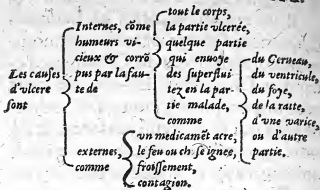 Les causes
d'vlcere
sont
Internes, cōme
humeurs vi-
cieux & corrō
pus par la fau-
te de
tout le corps,
la partie vlcerée,
quelque partie
qui enuoye
des superflui-
tez en la par-
tie malade,
comme
du Cerueau,
du ventricule,
du foye,
de la ratte,
d'vne varice,
ou d'autre
partie.
externes,
comme
vn medicamēt acre,
le feu ou choses ignees,
froissement,
contagion.